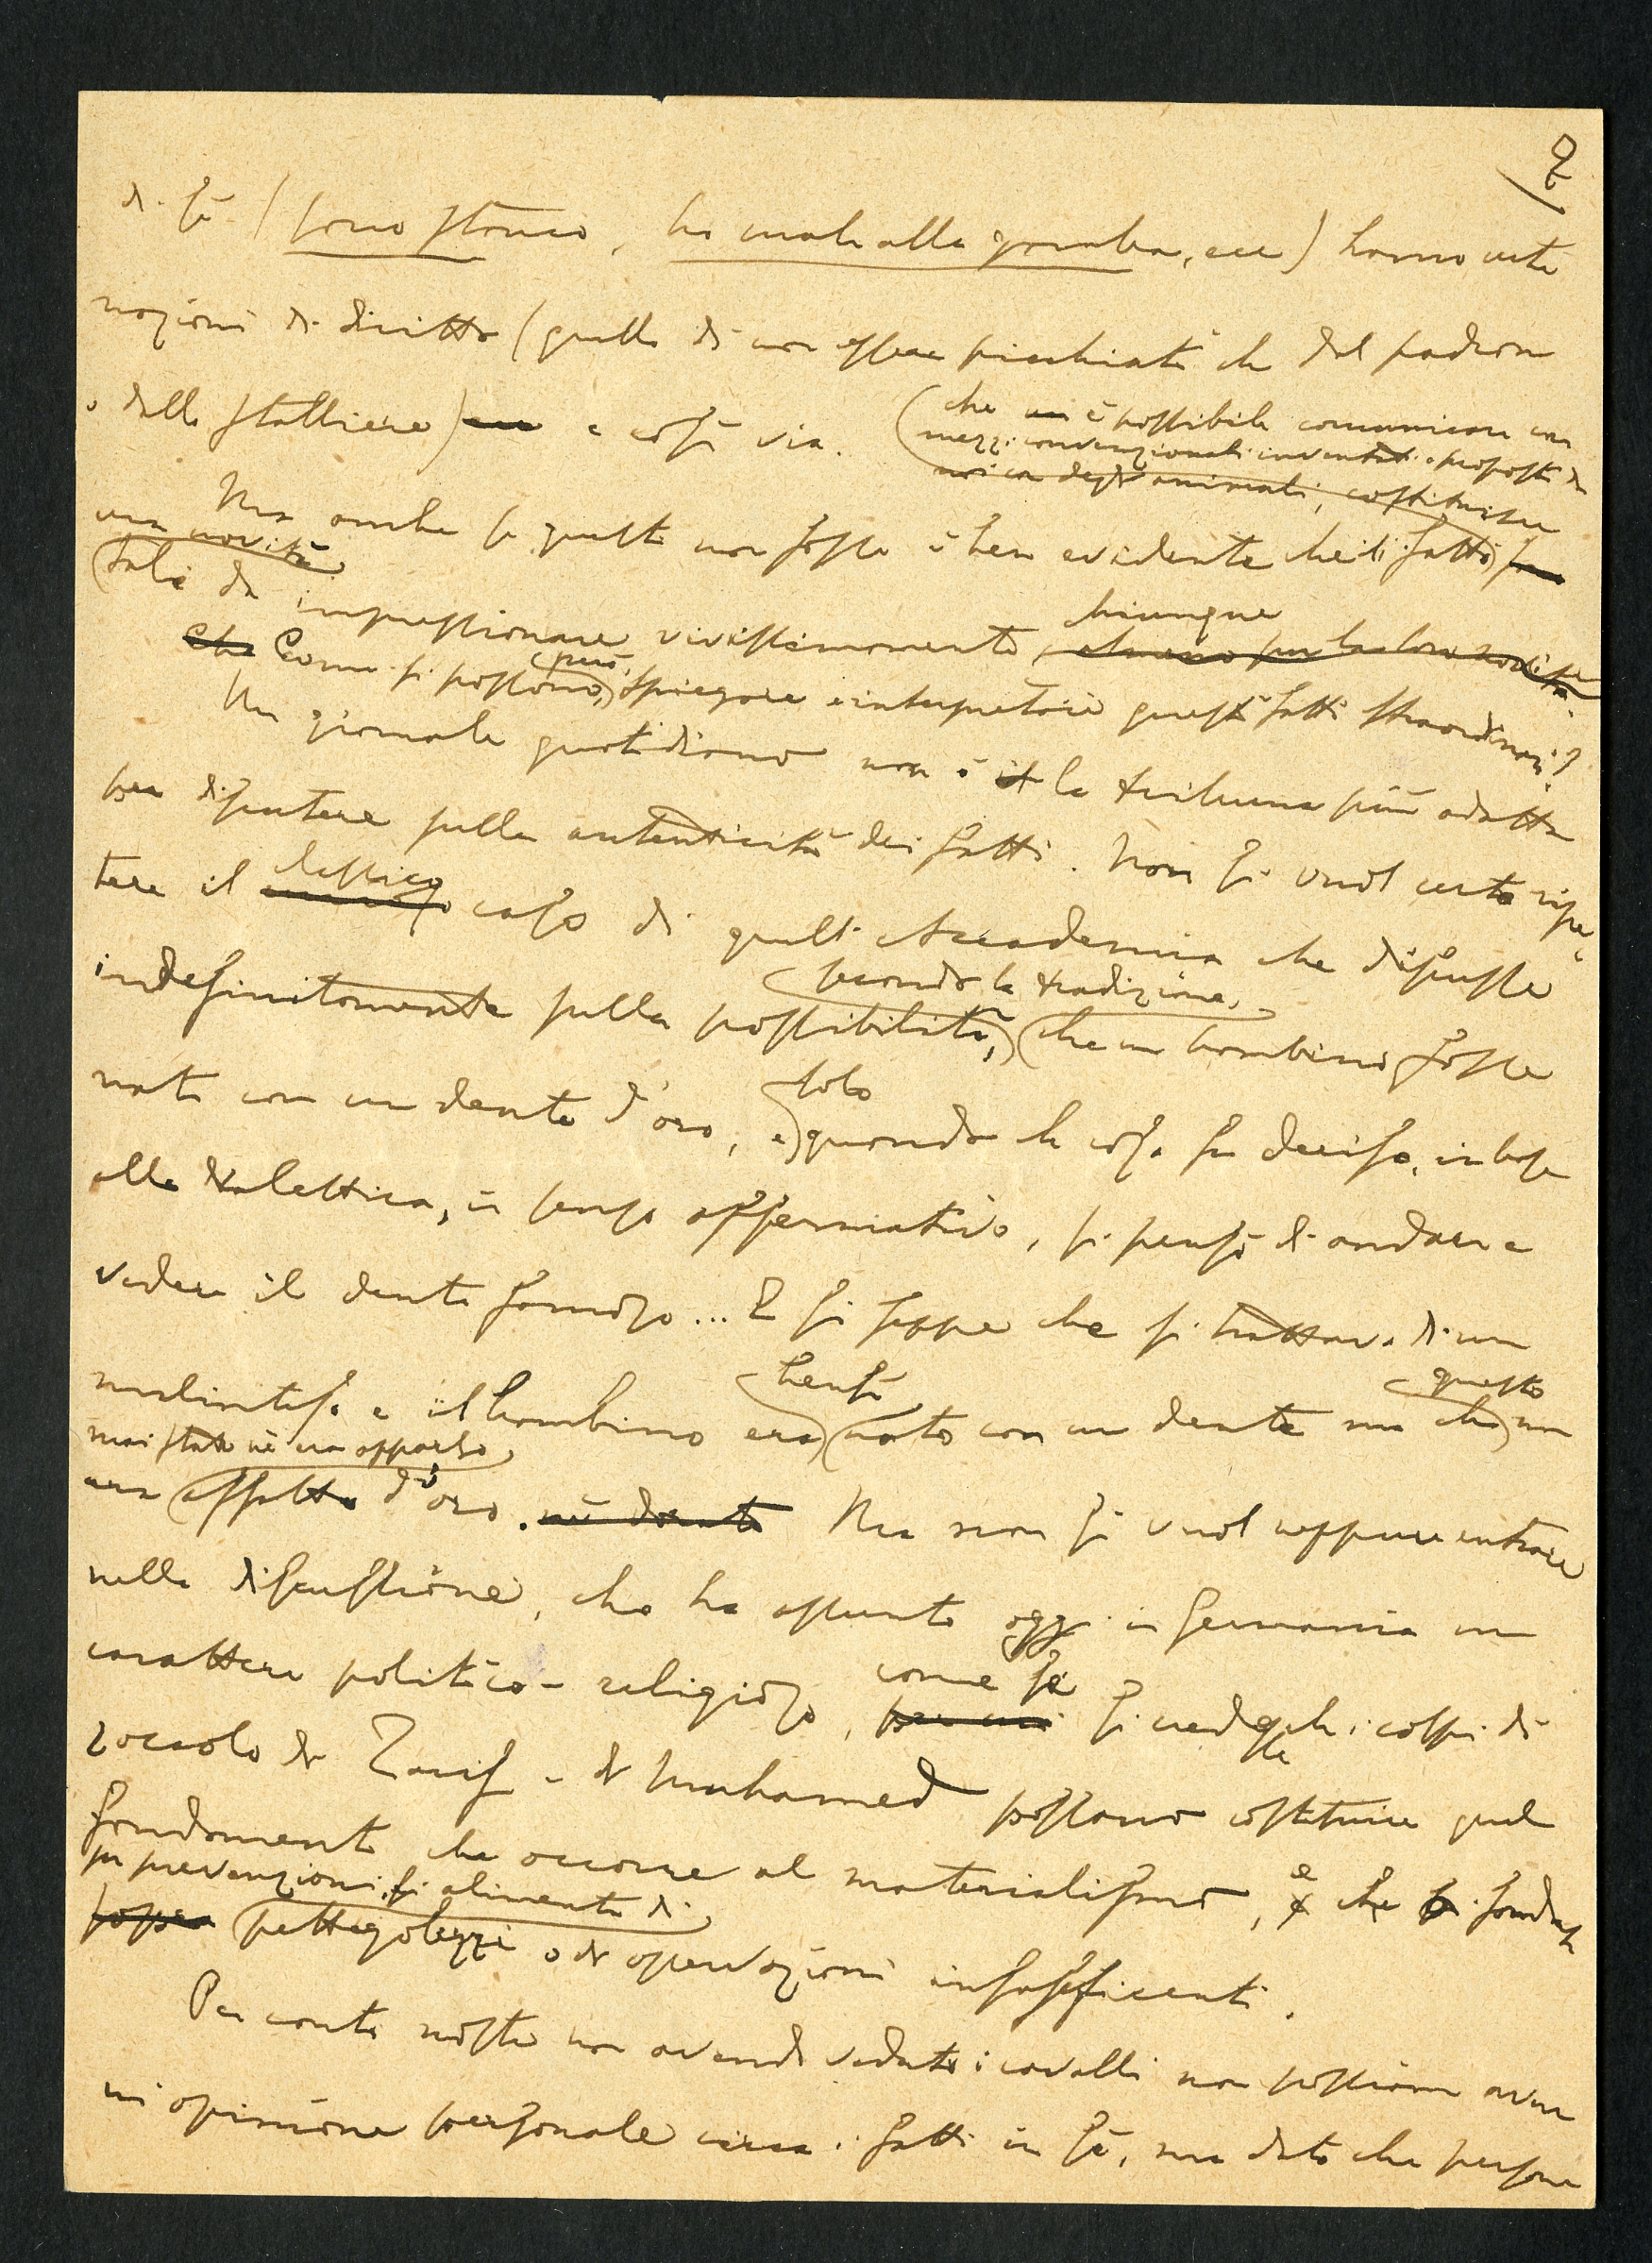 8
di sé (sono stanco, ho male alla gamba, ecc) hanno certe
nozioni di diritto (quello di non essere picchiati che dal padrone
o dallo stalliere) e così via.
(che è possibile comunicare con
mezzi convenzionali inventati e proposti da
noi con degli animali, costituisce
una novità
Ma anche se questo non fosse è ben evidente che il fatto
tale da impressionare vivissimamente, chiunque
almeno per la loro novità
Che Come si possono, però, spiegare e interpretare questi fatti straordinari?
Un giornale quotidiano non è il la tribuna più adatta
per disputere sulla autenticità dei fatti. Non si vuol certo ripe
tere il classico caso di quell'Accademia che discusse
indefinitamente sulla possibilità, secondo la tradizione, che un bambino fosse
nato con un dente d'oro, e solo quando la cosa fu decisa, in base
alla dialettica, in senso affermativo, si pensò di andare a
vedere il dente famoso... E si seppe che si trattava di un
malinteso e il bambino era bensì nato con un dente ma che questo non
era mai stato nè era apparso affatto d'oro. nè dorato Ma non si vuol neppure entrare
nella discussione, che ha assunto oggi in Germania un
carattere politico-religioso, come se si credesse che i colpi di
zoccolo di Zarif e di Muhamed possano costituire quel
fondamento che occorre al materialismo, e che si fonda
su prevenzioni, si alimenta di
sopra pettegolezzi o di osservazioni insufficienti.
Per conto nostro non avendo veduto i cavalli non possiamo aver
un opinione personale circa i fatti in sé, ma dato che persone